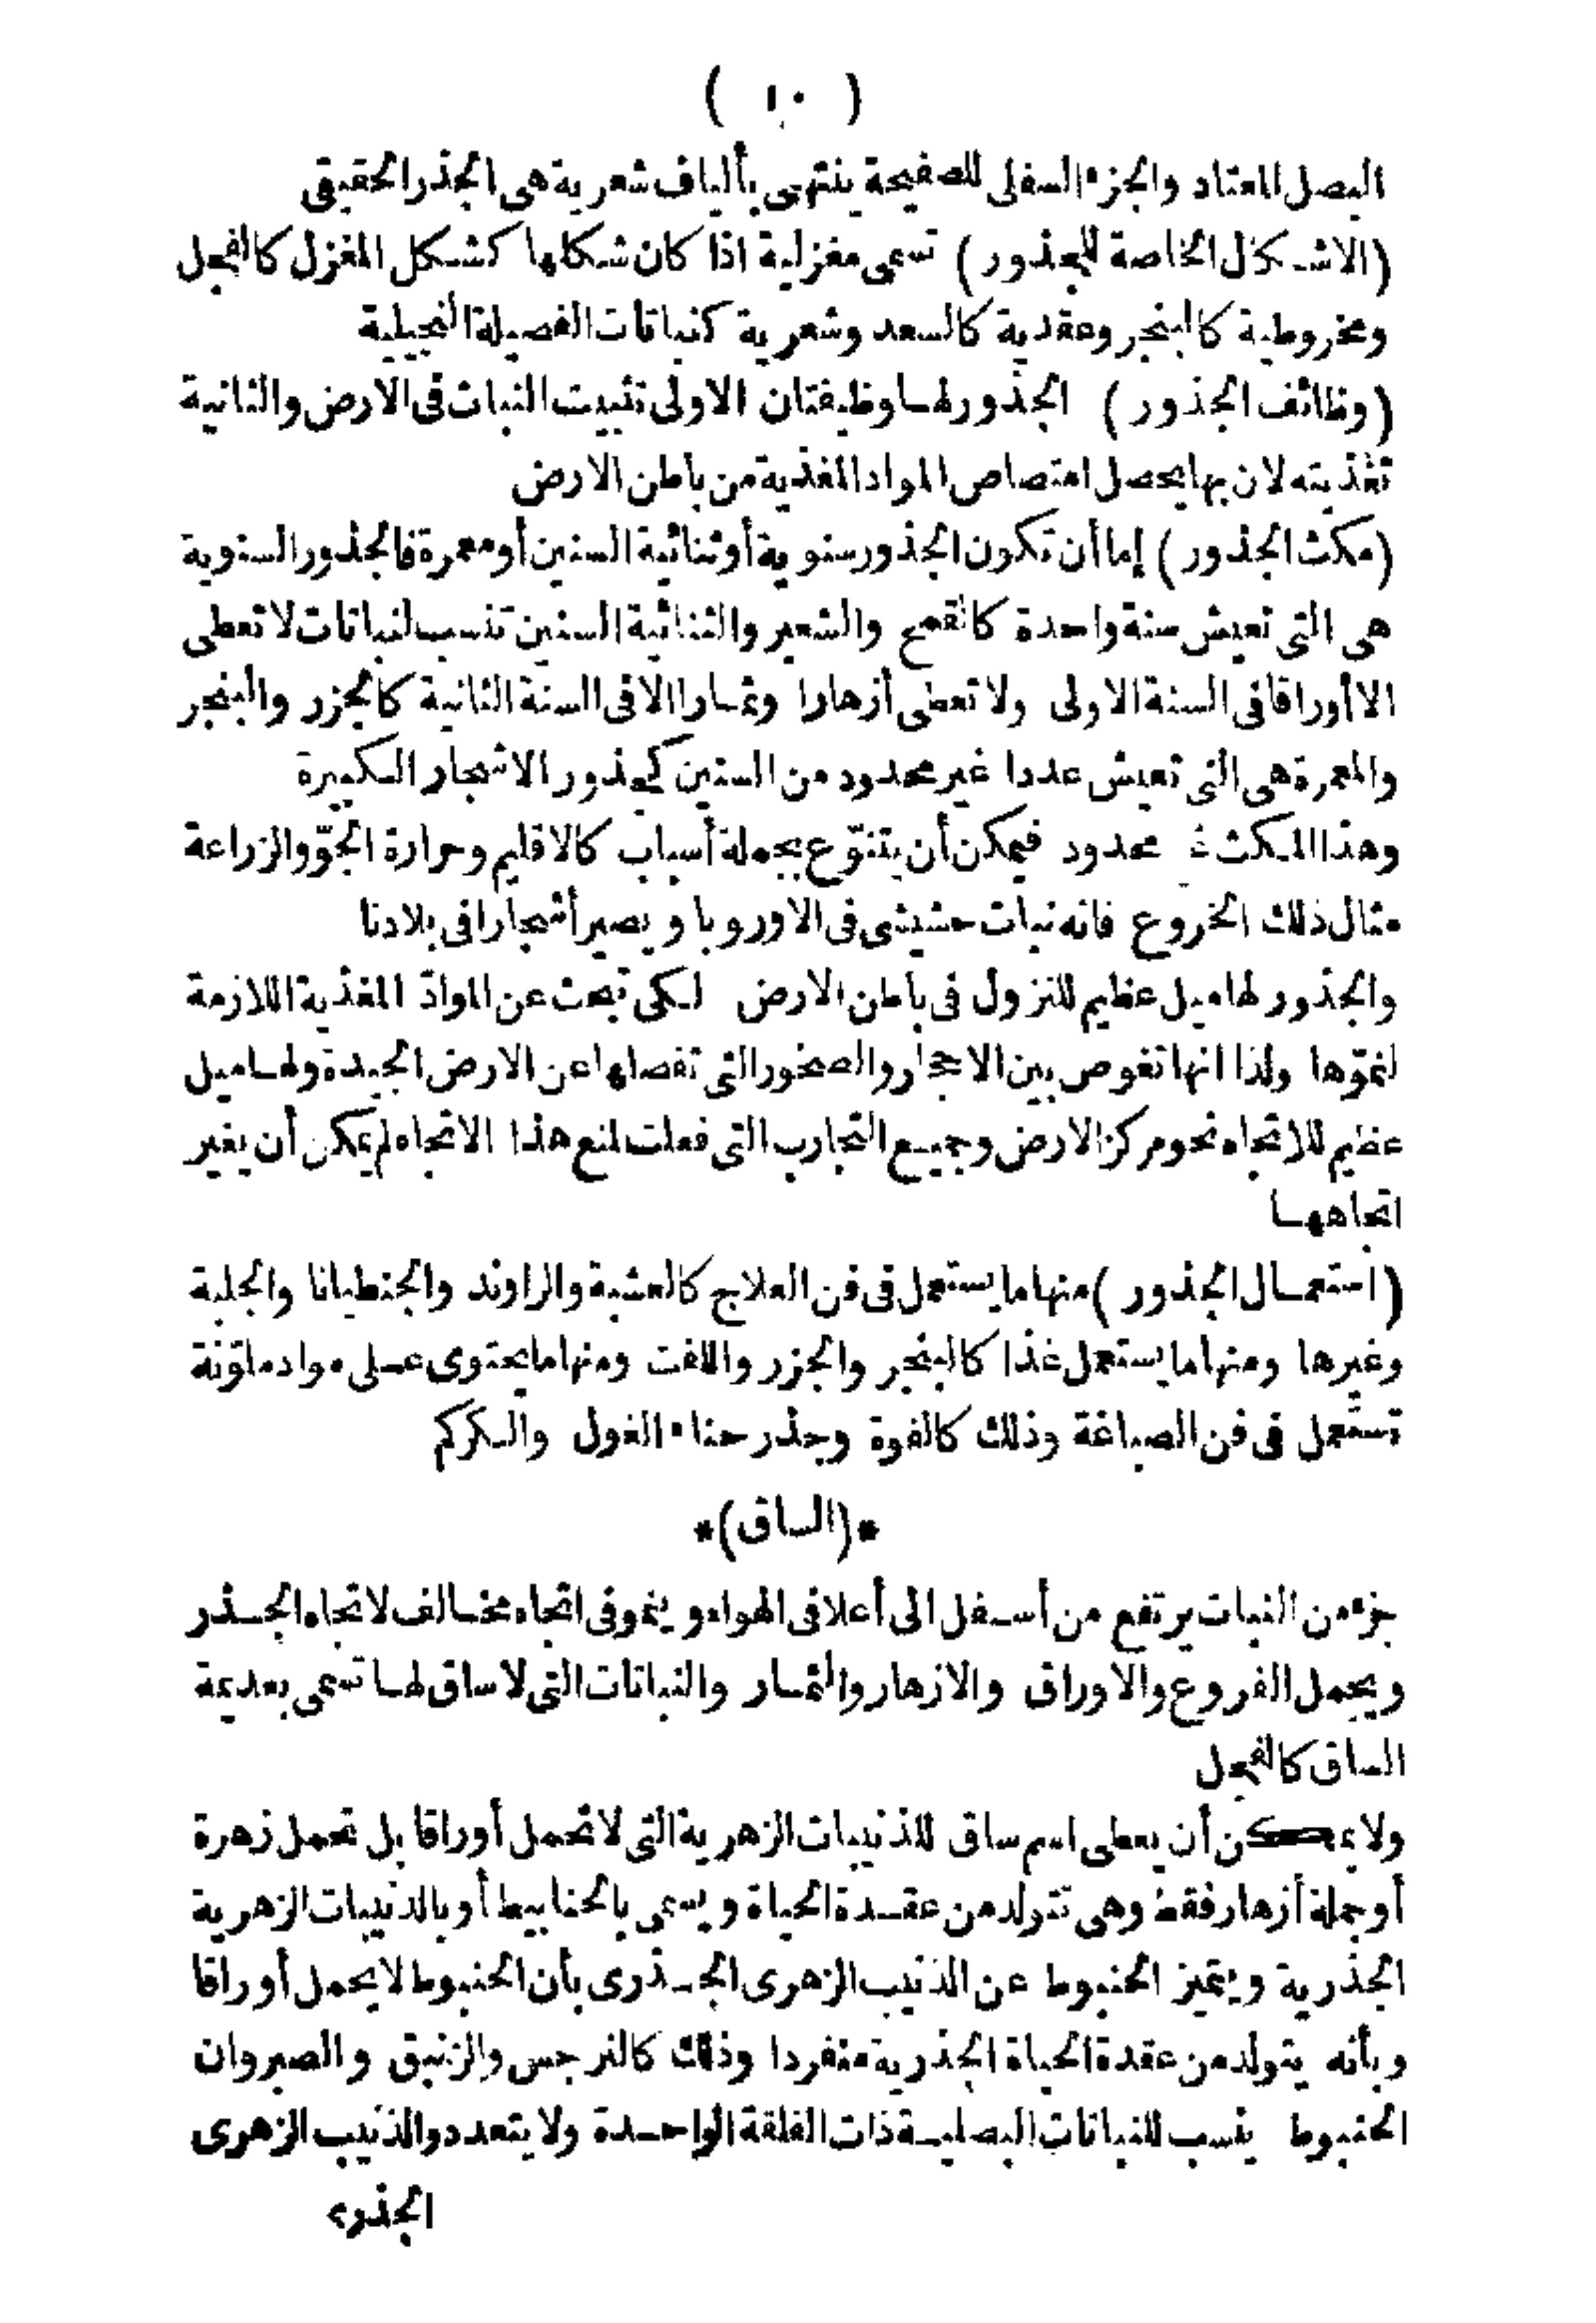 ( ١٠ )
البصل المعتاد والجزء السفلى للصفيحة ينتهى بألياف شعرية هى الجذر الحقيقى
(الاشكال الخاصة للجذور) تسمى مغزلية اذا كان شكلها كشكل المغزل كالفجل
ومخروطية كالبنجر وعقدية كالسعد وشعرية كنباتات الفصيلة النجيلية
(وظائف الجذور) الجذور لها وظيفتان الاولى تثبيت النبات فى الارض والثانية
تغذيته لان بها يحصل امتصاص المواد المغذية من باطن الارض
(مكث الجذور) إما أن تكون الجذور سنوية أو ثنائية السنين أو معمرة فالجذور السنوية
هى التى تعيش سنة واحدة كالقمح والشعير والثنائية السنين تنسب لنباتات لا تعطى
الا أوراقا فى السنة الاولى ولا تعطى أزهارا وثمارا الا فى السنة الثانية كالجزر والبنجر
والمعمرة هى التى تعيش عددا غير محدود من السنين كجذور الاشجار الكبيرة
وهذا المكث محدود فيمكن أن يتنوّع بجملة أسباب كالاقليم وحرارة الجوّ والزراعة
مثال ذلك الخروع فانه نبات حشيشى فى الاوروبا ويصير أشجارا فى بلادنا
والجذور لها ميل عظيم للنزول فى باطن الارض لكى تبحث عن الموادّ المغذية اللازمة
لنموّها ولذا انها تغوص بين الاحجار والصخور التى تفصلها عن الارض الجيدة ولها ميل
عظيم للاتجاه نحو مركز الارض وجميع التجارب التى فعلت لمنع هذا الاتجاه لم يمكن أن يغير
اتجاهها
(استعمال الجذور) منها ما يستعمل فى فن العلاج كالعشبة والراوند والجنطيانا والجلبة
وغيرها ومنها ما يستعمل غذا كالبنجر والجزر واللفت ومنها ما يحتوى على مواد ملوّنة
تستعمل فى فن الصباغة وذلك كالفوة وجذر حناء الغول والكركم
*(الساق)*
جزء من النبات يرتفع من أسفل الى أعلا فى الهواء وينمو فى اتجاه مخالف لاتجاه الجذر
ويحمل الفروع والاوراق والازهار والثمار والنباتات التى لا ساق لها تسمى بعديمة
الساق كالفجل
ولا يمكن أن يعطى اسم ساق للذنيبات الزهرية التى لا تحمل أوراقا بل تحمل زهرة
أو جملة أزهار فقط وهى تتولد من عقدة الحياة ويسمى بالحنابيط أو بالذنيبات الزهرية
الجذرية ويتميز الحنبوط عن الذنيب الزهرى الجذرى بأن الحنبوط لا يحمل أوراقا
وبأنه يتولد من عقدة الحياة الجذرية منفردا وذلك كالنرجس والزنبق والصبر وان
الحنبوط ينسب للنباتات البصلية ذات الفلقة الواحدة ولا يتعدد والذنيب الزهرى
الجذرى